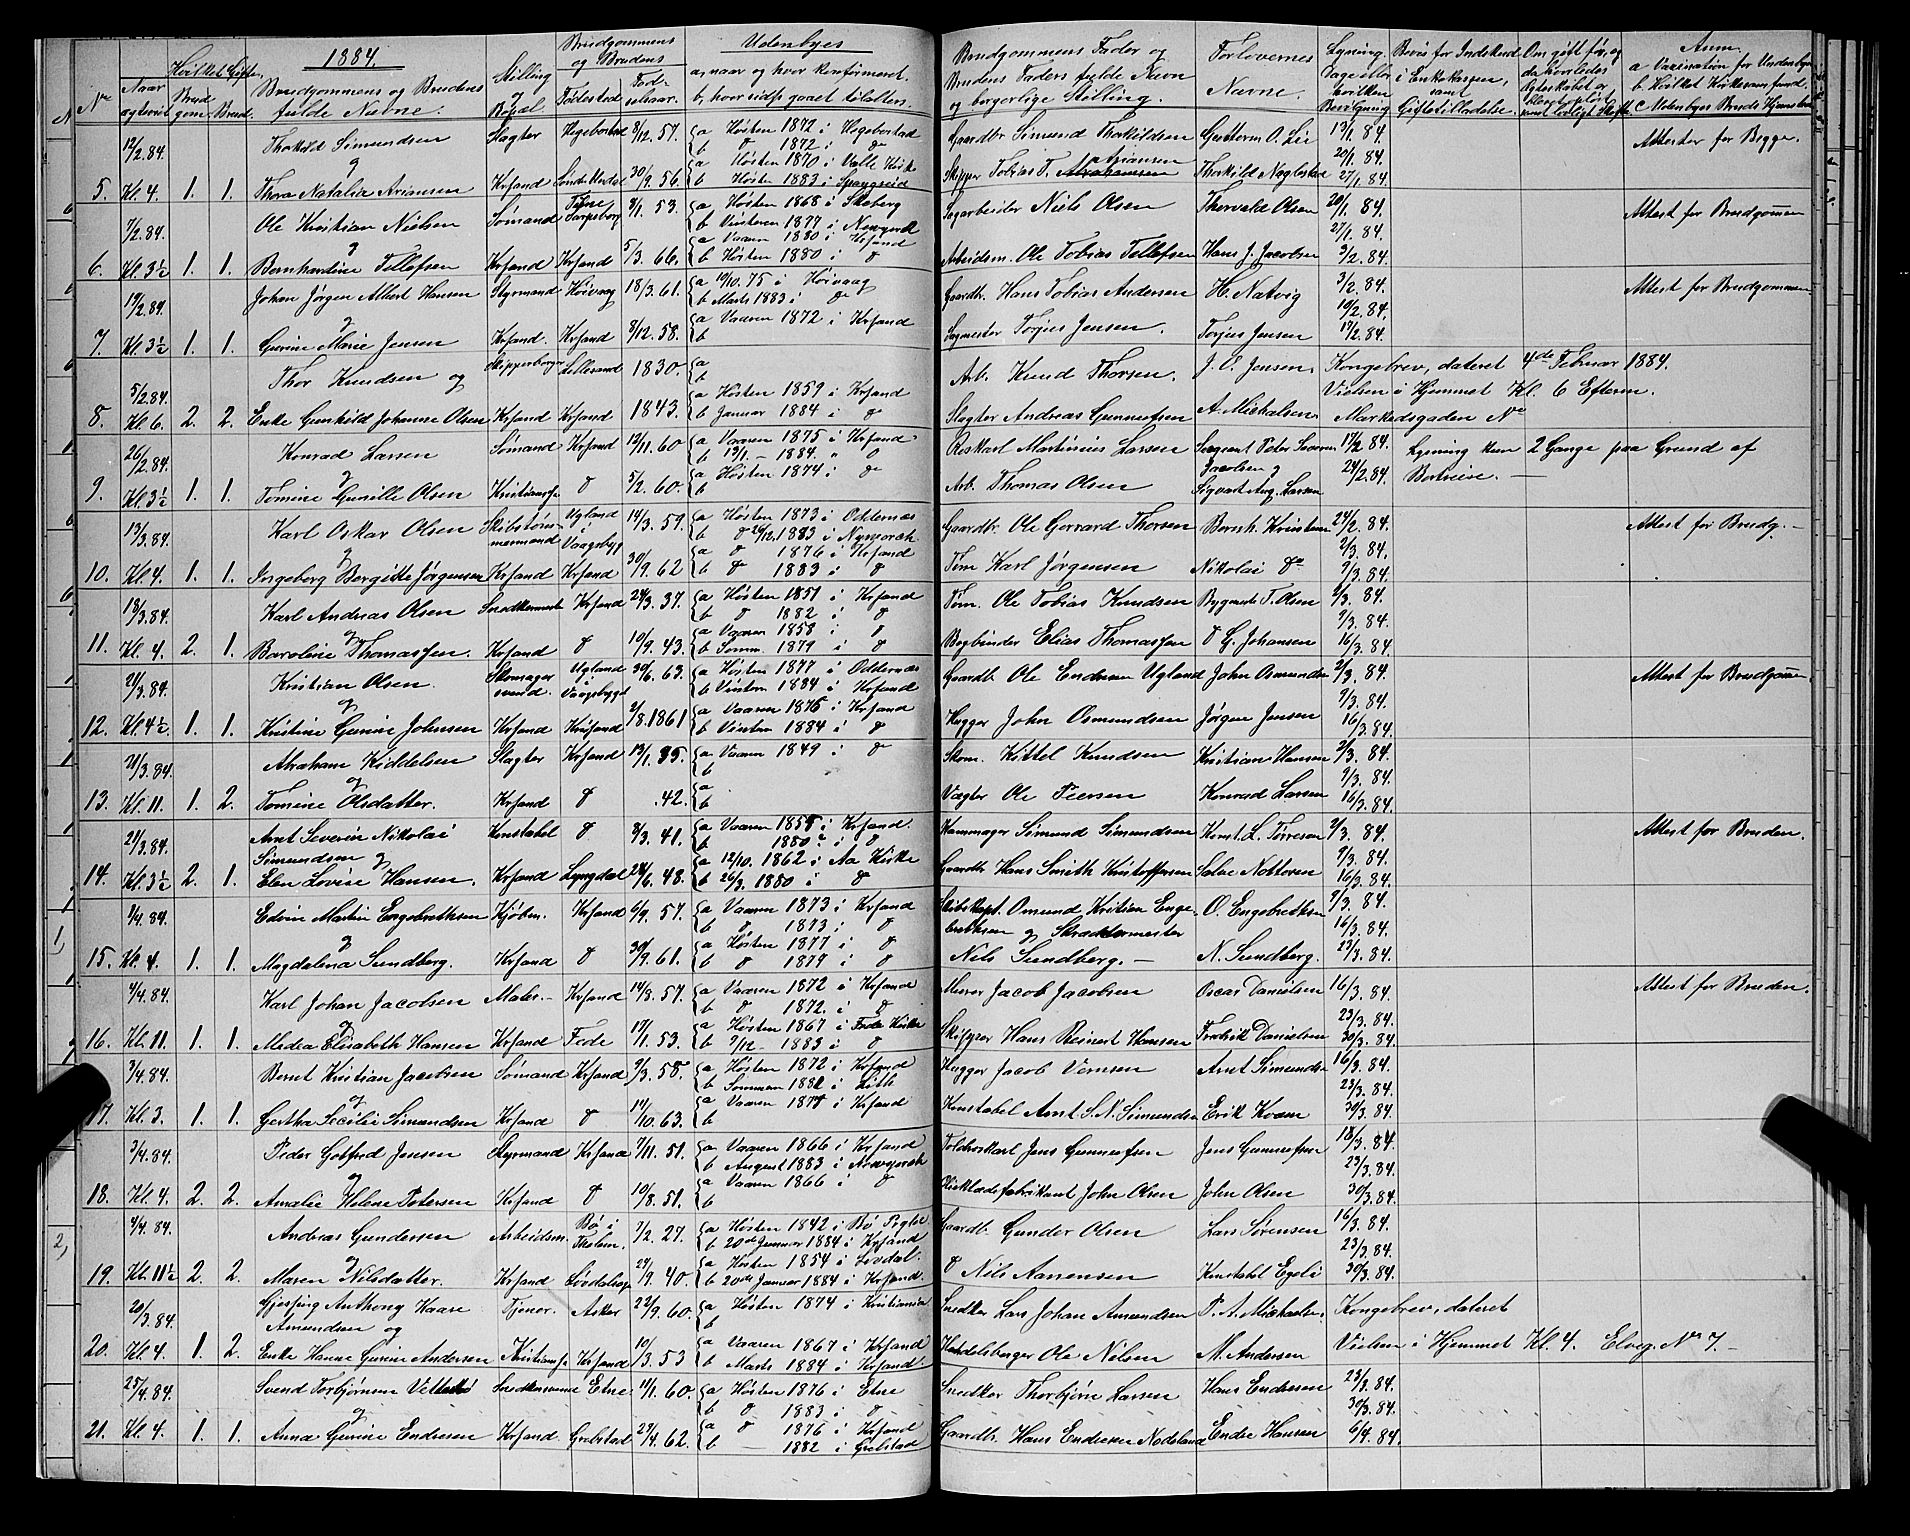 1884.
No
Naar agteviet
Hvilket Gifte.
Brudgom. Brud.
Brudgommens og Brudens fulde Navne.
Stilling og Bopæl
Brudgommens og Brudens
Fødested Fødselsaar.
Udenbyes
a, naar og hvor konfirmeret.
b, hvor sidst gaaet til alters.
Brudgommens Fader og Brudens Faders fulde Navn og borgerlige Stilling.
Forlovernes Navne.
Lysnings Dage eller hvilken Bevilgning
Bevis for Indskud i Enkekassen, samt Giftetilladelse.
Om gift før, og da hvorledes Ægteskabet er blevet opløst samt lovligt Skifte
Anm.
a Vaccination for Udenbys
b. Hvilket Kirkesamfund.
c Udenbyes Bruds Hjemsted
12/2.84. Thorkild Simundsen Slagter Hegebostad 8/12.57. a Høsten 1872 i Hegebostad Gaardbr. Simund Thorkildsen Guttorm O. Lie 13/1.84. Attester for Begge.
og b do 1872 i do 20/1.84.
5. Kl. 4. 1. 1. Thora Natalia Ariansen Krsand Søndre Undal 30/9.56. a Høsten 1870 i Valle Kirk Skipper Tobias T. Ariansen Thorkild Nøgelstad 27/1.84.
b Høsten 1883 i Spangreid
7/2.84. Ole Kristian Nielsen Sømand Tune Sarpsborg 8/1.53. a Høsten 1868 i Skeberg Sagarbeider Niels Olsen Thorvald Olsen 20/1.84. Attest for Brudgommen
og b Vinteren 1877 i Newyorck 27/1.84.
6. Kl. 3½ 1. 1. Bernhardine Tellefsen Krsand Krsand 5/3.66. a Vaaren 1880 i Krsand Arbeidsm. Ole Tobias Tellefsen Hans J. Jacobsen 3/2.84.
b Høsten 1880 i do
19/2.84. Johan Jørgen Albert Hansen Styrmand Høivaag 18/3.61. a 10/10.75 i Høivaag Gaardbr. Hans Tobias Andersen H. Natvig 3/2.84. Attest for Brudgommen.
og b Marts 1883 i do 10/2.84.
7. Kl. 3½ 1. 1. Gurine Marie Jensen Krsand. Krsand 8/12.58. a Vaaren 1872 i Krsand Sagmester Torjus Jensen. Torjus Jensen 17/2.84.
b
5/2.84. Thor Knudsen og Skipperborger Lillesand 1830. a b Arb. Knud Thorsen. J. C. Jensen. Kongebrev, dateret 4de Februar 1884.
Vielsen i Hjemmet Kl. 6 Efterm.
8. Kl. 6. 2. 2. Enke Gunhild Johanne Olsen Krsand Krsand 1843. a Høsten 1859 i Krsand b Januar 1884 i do Slagter Andreas Gunnufsen A. Michalsen Markedsgaden No
26/2.84. Konrad Larsen Sømand Krsand 12/11.60 a Vaaren 1875 i Krsand Oliskarl Martinius Larsen Sergeant Peder Severin 17/2 84. Lysning kun 2 Gange paa Grund af
og b 13/1 - 1884. " Jacobsen og 24/2.84. Bortreise. —
9. Kl. 3½ 1. 1. Tomine Gunille Olsen Kristianss do 5/2.60. a Høsten 1874 i do Arb. Thomas Olsen Sigvart Aug. Larsen
b
13/3.84. Karl Oskar Olsen Skibstømmermand Ugland i Vaagsbyg 14/3.57. a Høsten 1873 i Oddernæs Gaardbr. Ole Gerrard Thorsen Bernh. Kristensen 24/2.84. Attest for Brudg. —
og b do 24/12.1883 i Newyorck 2/3.84.
10. Kl. 4. 1. 1. Ingeborg Bergitte Jørgensen Krsand Krsand 30/9.62 a do 1876 i Krsand b do 1883 i do Tøm. Karl Jørgensen Nikolai do 9/3.84.
18/3.84. Karl Andreas Olsen Snedkermester Krsand 24/3.37. a Høsten 1851 i Krsand Tøm. Ole Tobias Knudsen Bygmester T. Olsen 2/3.84.
og b do 1882 i do 9/3.84.
11. Kl. 4. 2. 1. Baroline Thomassen. Krsand do 10/9.43. a Vaaren 1858 i do b Somm. 1879 i do Bogbinder Elias Thomassen do G. Johansen 16/3.84.
21/3.84. Kristian Olsen. Skomagersvend. Ugland i Vaagsbygd 30/6.63. a Høsten 1877 i Oddernæs Gaardb. Ole Endresen Ugland John Osmundsen 2/3.84. Attest for Brudgommen.
og b Vintern 1884 i Krsand 9/3.84.
12. Kl. 4½ 1. 1. Kristine Gurine Johnsen Krsand Krsand 2/8.1861 a Vaaren 1876 i Krsand b Vintern 1884 i do Hugger John Osmundsen Jørgen Jensen 16/3.84.
21/3.84. Abraham Kiddelsen Slagter Krsand 13/1.35. a Vaaren 1849 i do b Skom. Kittel Knudsen Kristian Hansen 2/3.84.
og 9/3.84.
13. Kl. 11. 1. 2. Tomine Olsdatter. Krsand do .42. a b Vægter Ole Peersen Konrad Larsen 16/3.84.
21/3.84. Arnt Severin Nikolai Simundsen og Konstabel do 9/3.41. a Vaaren 1855 i Krsand. b 1880 i do Kammager Simund Simundsen Konst. L. Tørresen 2/3.84. Attest for Bruden.
9/3.84.
14. Kl. 3½ 2. 1. Elen Lovise Hansen. Krsand Lyngdal 24/6.48. a 12/10.1862 i Aa Kirke b 26/3.1880 i do Gaardbr Hans Smith Kristoffersen Salve Nottosen 16/3.84.
1/4.84. Edvin Martin Engebrethsen Kjøbm. Krsand 6/9.57. a Vaaren 1873 i Krsand Skibskapt. Omund Kristian Enge- O. Engebrethsen 9/3.84.
og b do 1873 i do brethsen og Skræddermester 16/3.84.
15. Kl. 4. 1. 1. Magdalena Sundberg. Krsand do 30/9.61. a Høsten 1877 i do b do 1879 i do Nils Sundberg. — N. Sundberg. 23/3.84.
4/4.84. Karl Johan Jacobsen Maler.- Krsand 14/8.57. a Vaaren 1872 i Krsand Murer Jacob Jacobsen Oscar Danielsen 16/3.84. Attest for Bruden.
og b do 1872. i do 23/3.84.
16. Kl. 11. 1. 1. Medea Elisabeth Hansen Krsand Fede 17/1.53. a Høsten 1867 i Fede Kirke b 9/12- 1883 i do Skipper Hans Reinert Hansen Fredrik Danielsen 30/3.84.
3/4.84. Bernt Kristian Jacobsen Sømand Krsand 9/3.58. a Høsten 1872 i Krsand Hugger Jacob Vernsen Arnt Simundsen 16/3.84.
og b Sommeren 1882 i Lith 23/3.84.
17. Kl. 3. 1. 1. Gertha Secilie Simundsen Krsand do 19/10.63. a Vaaren 1877 i Krsand b Konstabel Arnt S. N. Simundsen Erik Kvam 30/3.84.
3/4.84. Peder Gotfred Jensen Styrmand Krsand 7/11.51. a Vaaren 1866 i Krsand Toldroskarl Jens Gunnufsen Jens Gunnufsen 18/3.84.
og b August 1883 i Newyorck 23/3.84.
18. Kl. 4. 2. 2. Amalie Helene Petersen Krsand do 10/8.51. a Vaaren 1866 i do b John Olsen John Olsen 30/3.84.
4/4.84. Andreas Gundersen Arbeidsm. Bø i Thelem. 7/2.27. a Høsten 1842 i Bø Prgld. Gaardb. Gunder Olsen Lars Sørensen 16/3.84.
og b 20de Januar 1884 i Krsand 23/3.84.
19. Kl. 11½ 2. 2. Maren Nilsdatter. Krsand 29/9.40. a Høsten 1854 i b 20de Januar 1884 i Krsand. do Nils Aanensen Konstabel Egeli 30/3.84.
20/3.84. Gjerfing Anthony Kaare Amundsen og Tjener. Asker 22/9.60. a Høsten 1874 i Kristiania b Snedker Lars Johan Amundsen P. A. Michaelsen. Kongebrev, dateret
20. Kl. 4. 1. 2. Enke Hanne Gurine Andersen Kristianss Krsand 10/3.53 a Vaaren 1867 i Krsand b Marts 1884 i Krsand. Handelsborger Ole Nilsen M. Andersen Vielsen i Hjemmet Kl. 4. Elveg. No 7. —
25/4.84. Svend Torbjørnsen Snedkersvend Etne 11/1.60. a Høsten 1876 i Etne Snedker Thorbjørn Larsen Hans Endresen 23/3.84.
og b do 1883 i do 30/3.84.
21. Kl. 4. 1. 1. Anna Gurine Endresen Krsand. Grebstad 27/4.62. a do 1876 i Krsand b — 1882 i Grebstad Gaardbr. Hans Endresen Nodeland Endre Hansen 6/4.84.